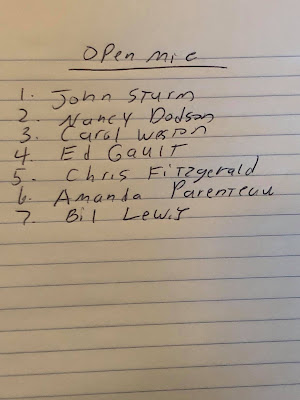 Open mic
1. John Sturm
2. Nancy Dodson
3. Carol Weston
4 Ed Gault
5. Chris Fitzgerald
6. Amanda Parenteau
7. Bil Lewis